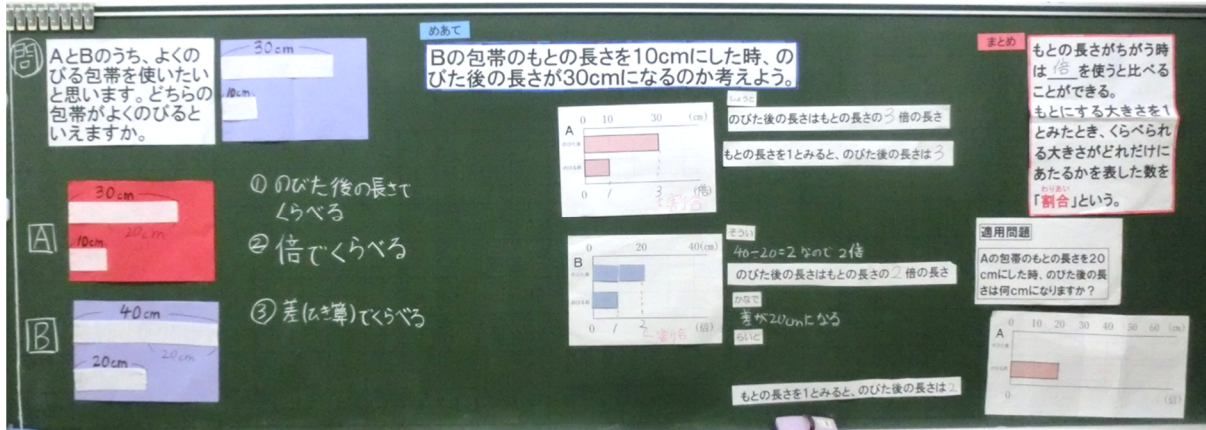 問
AとBのうち、よくの
びる包帯を使いたい
と思います。どちらの
包帯がよくのびると
いえますか。
30cm
10cm
A
30cm
20cm
10cm
B
40cm
20cm
20cm
① のびた後の長さで
くらべる
② 倍でくらべる
③ 差(ひき算)でくらべる
めあて
Bの包帯のもとの長さを10cmにした時、の
びた後の長さが30cmになるのか考えよう。
0 10 30 (cm)
A
0 1 3 (倍)
割合
しょうと
のびた後の長さはもとの長さの3倍の長さ
もとの長さを1とみると、のびた後の長さは3
0 20 40(cm)
B
0 1 2 (倍)
割合
そうい
40÷20=2なので2倍
のびた後の長さはもとの長さの2倍の長さ
かなで
差が20cmになる
らいと
もとの長さを1とみると、のびた後の長さは2
まとめ
もとの長さがちがう時
は 倍 を使うと比べる
ことができる。
もとにする大きさを1
とみたとき、くらべられ
る大きさがどれだけに
あたるかを表した数を
わりあい
「割合」という。
適用問題
Aの包帯のもとの長さを20
cmにした時、のびた後の長
さは何cmになりますか?
0 10 20 30 40 50 60 (cm)
A
0 (倍)